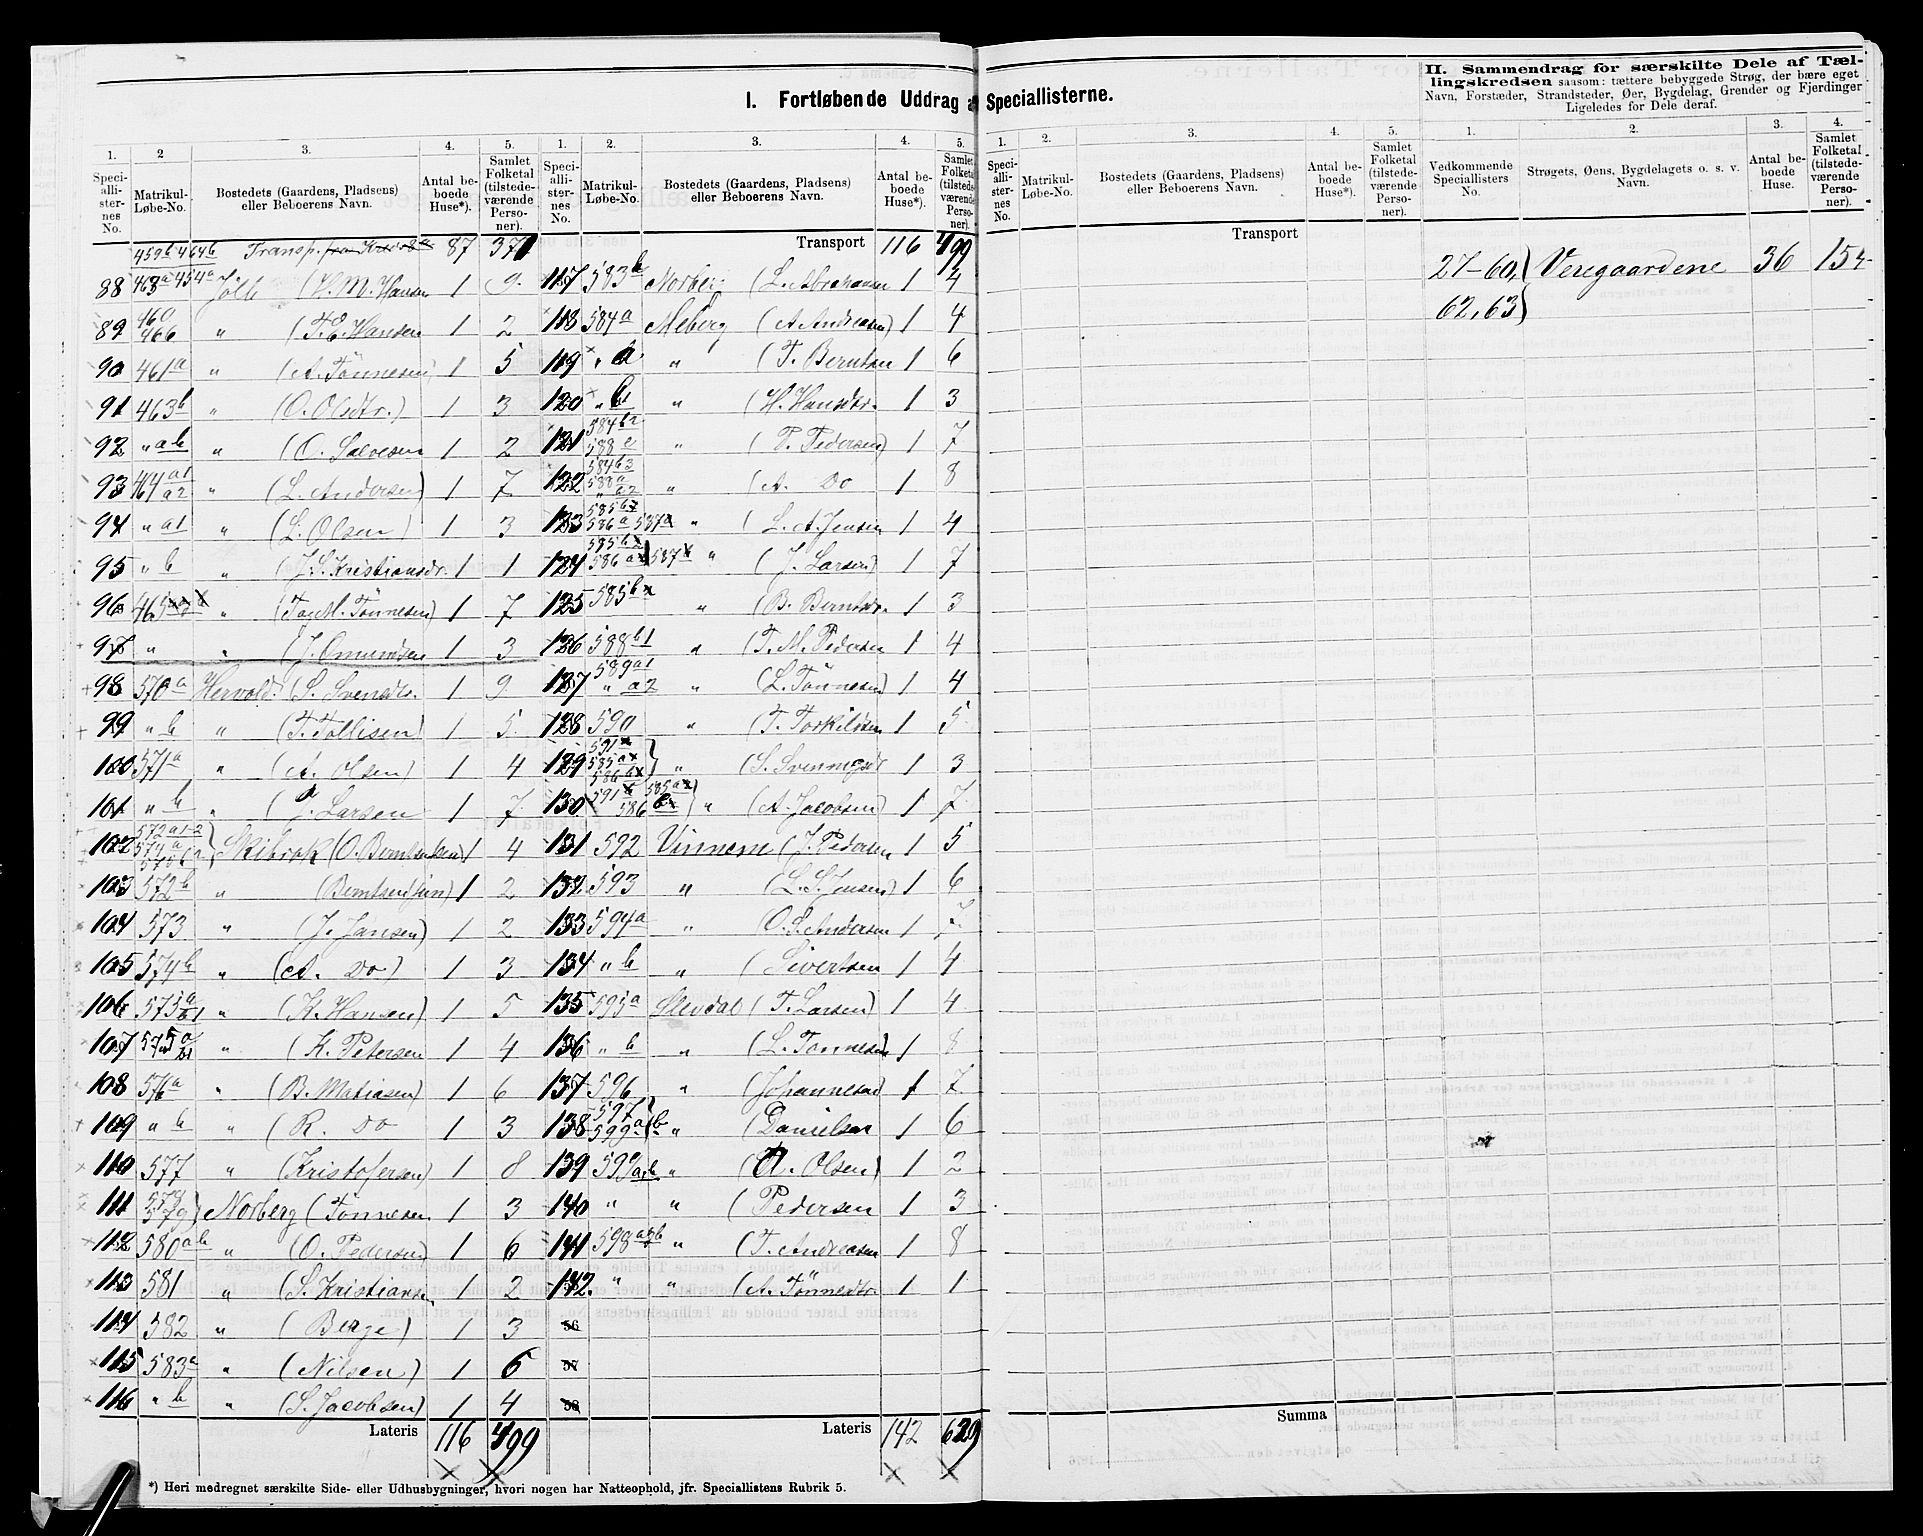 I. Fortløbende Uddrag a Speciallisterne.
II. Sammendrag for særskilte Dele af Tæl-
lingskredsen saasom: tættere bebyggede Strøg, der bære eget
Navn, Forstæder, Strandsteder, Øer, Bygdelag, Grender og Fjerdinger
Ligeledes for Dele deraf.
1. 2 3. 4. 5. 1. 2. 3. 4. 5.
Speci-alli-ster-nes No. Matrikul-Løbe-No. Bostedets (Gaardens, Pladsens) eller Beboerens Navn. Antal be-boede Huse*). Samlet Folketal (tilstede-værende Perso-ner).
Speci-alli-ster-nes No. Matrikul-Løbe-No. Bostedets (Gaardens, Pladsens) eller Beboerens Navn. Antal be-boede Huse*). Samlet Folketal (tilstede-værende Perso-ner).
459b 464b Transp. 87 371
88 463a 454a Jølle (H. M. Hansen 1 9
89 460 466 " (T. E. Hansen 1 2
90 461a " (A. Tönnesen) 1 5
91 463b " (O. Olsdtr.) 1 3
92 " ab " (O. Salvesen 1 2
93 464 a1 a2 " (L. Andersen) 1 7
94 " a1 " (L. Olsen) 1 3
95 " b " (J. S. Kristiansdr. 1 1
96 465 " (Tag M. Tönnesen) 1 7
97 " " (J. Omundsen 1 3
98 570a Hervold. (S. Svendtr. 1 9
99 " b " (T. Tollisen) 1 5
100 571a " (A. Olsen) 1 4
101 " b " (J. Larsen 1 7
102 572a1-2 574a Skibrak (O. Berntsen 1 4
103 572b " (Berntsen jun) 1 2
104 573 " (J. Jansen) 1 2
105 574b " (A. Do) 1 3
106 575a b1 " (K. Hansen) 1 5
107 575a " (K. Petersen 1 4
108 576a " (B. Matiasen) 1 6
109 " b " (R. Do 1 3
110 577 " (Kristofersen) 1 8
111 578 579 Norberg (Tönnesen 1 3
112 580ab " (O. Pedersen) 1 6
113 581 " (S. Kristiansen 1 2
114 582 " (Berge) 1 3
115 583a " (Nilsen) 1 6
116 " b " (S. Jacobsen) 1 4
Lateris 116 499
Transport 116 499
117 583b Norberg (L. Abrahamsen 1 4
118 584a Meberg (A. Andreasen) 1 4
119 " a " (T. Berntsen 1 6
120 " b1 " (H. Hansdtr. 1 3
121 584b2 588c " (P. Pedersen) 1 7
122 584b3 588a " a2 " (A. Do 1 8
123 585b 586a 587a " (L. A. Jensen 1 4
124 585b 586a 587 " (J. Larsen) 1 7
125 585b " (B. Berntsdr. 1 3
126 588b1 " (T. M. Pedersen 1 4
127 589a1 " a2 " (L. Tönnesen) 1 4
128 590 " (T. Torkildsen 1 5
129 591 585a 586b " (S. Svenningsdr 1 3
130 591 585a 586 " (A. Jacobsen) 1 7
131 592 Vinnem (J. Pedersen 1 5
132 593 " (L. S. Jensen) 1 6
133 594a " O. S. Andersen 1 7
134 " b " (Sivertsen 1 4
135 595a Slevdal (T. Larsen) 1 4
136 " b " (L. Tönnesen) 1 8
137 596 " (Johannesen) 1 7
138 597 599a b " (Danielsen 1 6
139 599ab " (A. Olsen) 1 2
140 " " (Pedersen 1 3
141 598ab " (T. Andreasen 1 8
142. " " (A. Tönnesdtr. 1 1
56
57
58
Lateris 142 629
*) Heri medregnet særskilte Side- eller Udhusbygninger, hvori nogen har Natteophold, jfr. Speciallistens Rubrik 5.
1. 2. 3. 4. 5.
Speci-alli-ster-nes No. Matrikul-Løbe-No. Bostedets (Gaardens, Pladsens) eller Beboerens Navn. Antal be-boede Huse*). Samlet Folketal (tilstede-værende Perso-ner).
Transport
Summa
1. 2. 3. 4.
Vedkommende Speciallisters No. Strøgets, Øens, Bygdelagets o. s. v. Navn. Antal be-boede Huse. Samlet Folketal (tilstede-værende Perso-ner).
27-60, } Veregaardene 36 154
62, 63 }